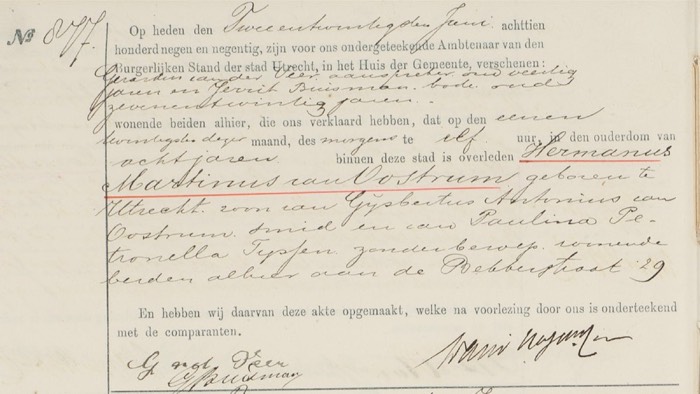 No 877.
Op heden den Tweeentwintigsten Juni achttien
honderd negen en negentig, zijn voor ons ondergeteekende Ambtenaar van den
Burgerlijken Stand der stad Utrecht, in het Huis der Gemeente, verschenen:
Gerardus van der Veer, aanspreker oud veertig
jaren en Gerrit Buisman, bode, oud
zevenentwintig jaren.
wonende beiden alhier, die ons verklaard hebben, dat op den eenen
twintigsten dezer maand, des morgens te elf uur, in den ouderdom van
acht jaren binnen deze stad is overleden Hermanus
Martinus van Oostrum geboren te
Utrecht. zoon van Gijsbertus Antonius van
Oostrum smid en van Paulina Pe-
tronella Tijssen zonder beroep. wonende
beiden alhier aan de Bebberstraat 29
En hebben wij daarvan deze akte opgemaakt, welke na voorlezing door ons is onderteekend
met de comparanten.
G Veer
G Buisman